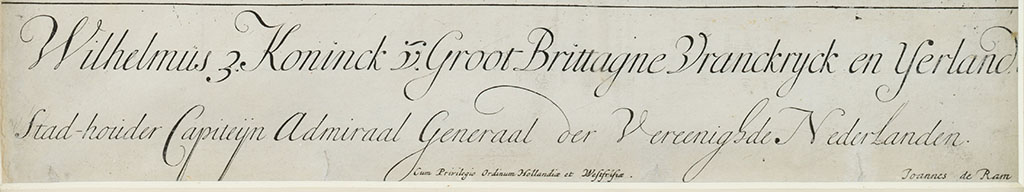 Wilhelmus 3. Koninck v. Groot Brittagne Vranckryck en Yerland.
Stad-houder Capiteijn Admiraal Generaal der Vereenighde Nederlanden.
Cum Privilegio Ordinum Hollandiæ et Westfrisiæ. Joannes de Ram